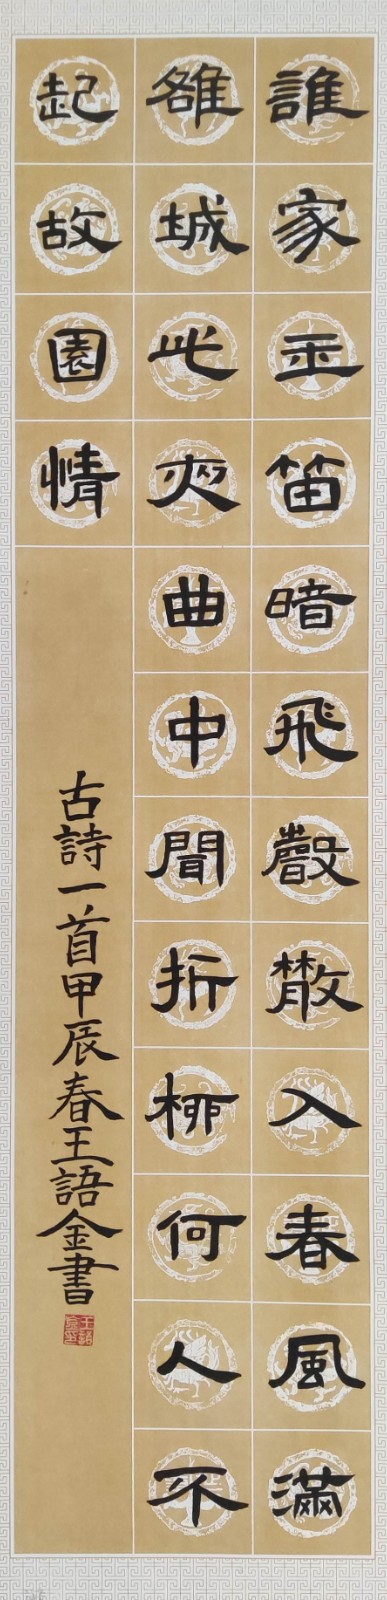 誰家玉笛暗飛聲散入春風滿
雒城此夾曲中聞折柳何人不
起故園情
古詩一首甲辰春王語金書